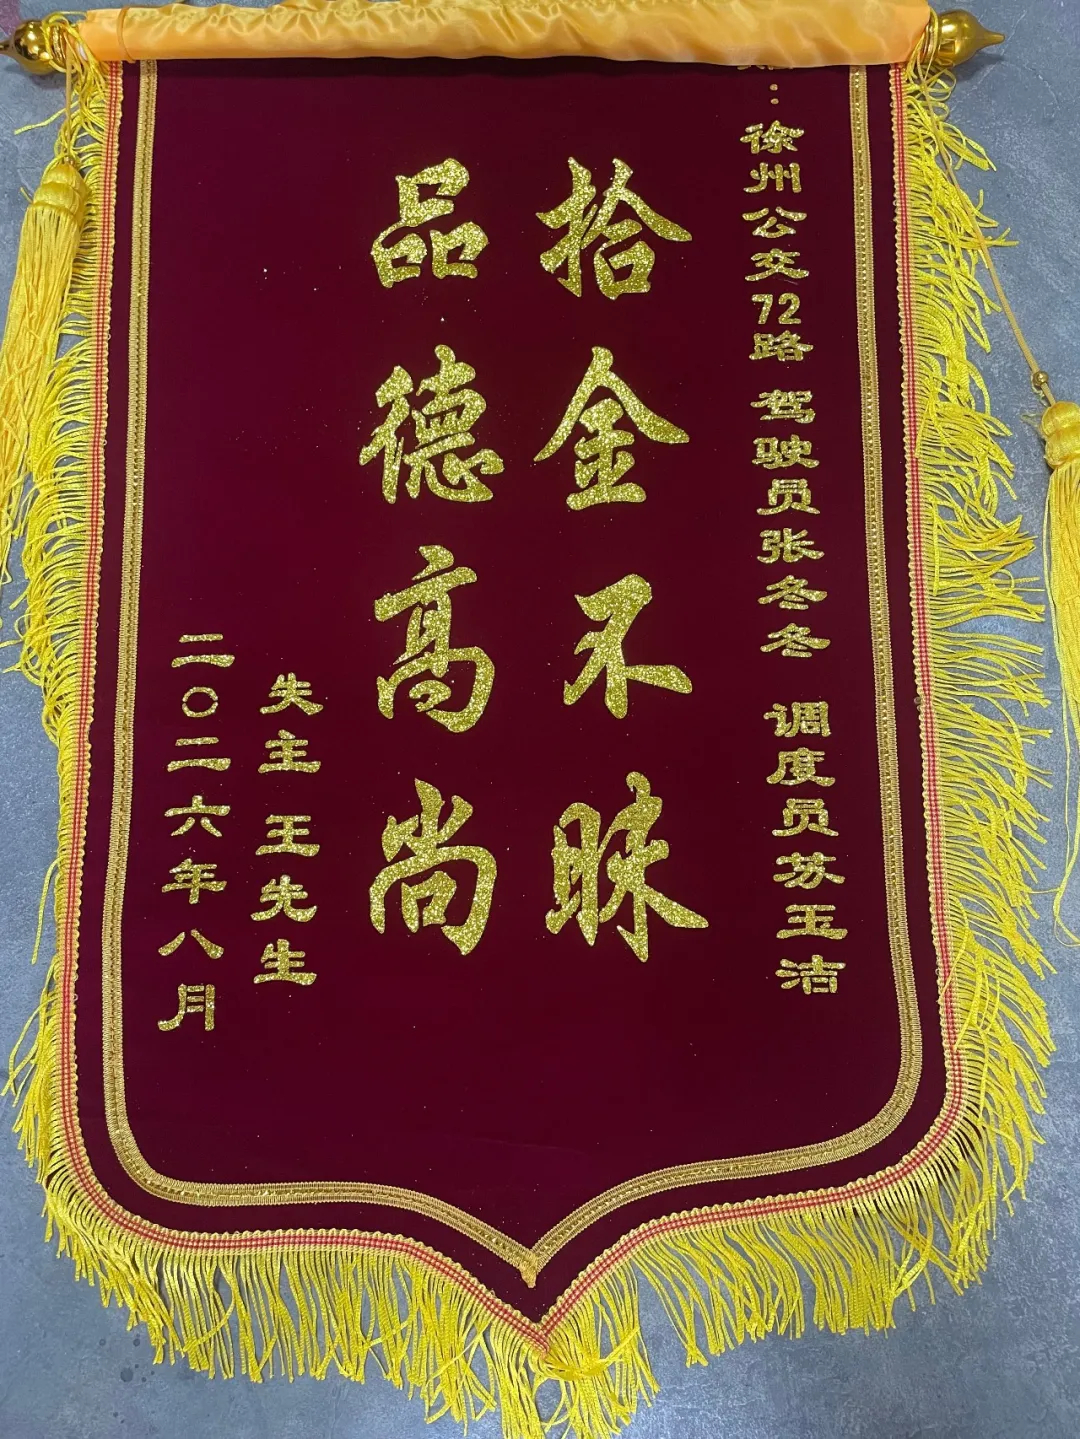 ：徐州公交72路 驾驶员张冬冬 调度员苏玉洁
拾金不昧
品德高尚
失主 王先生
二〇二六年八月